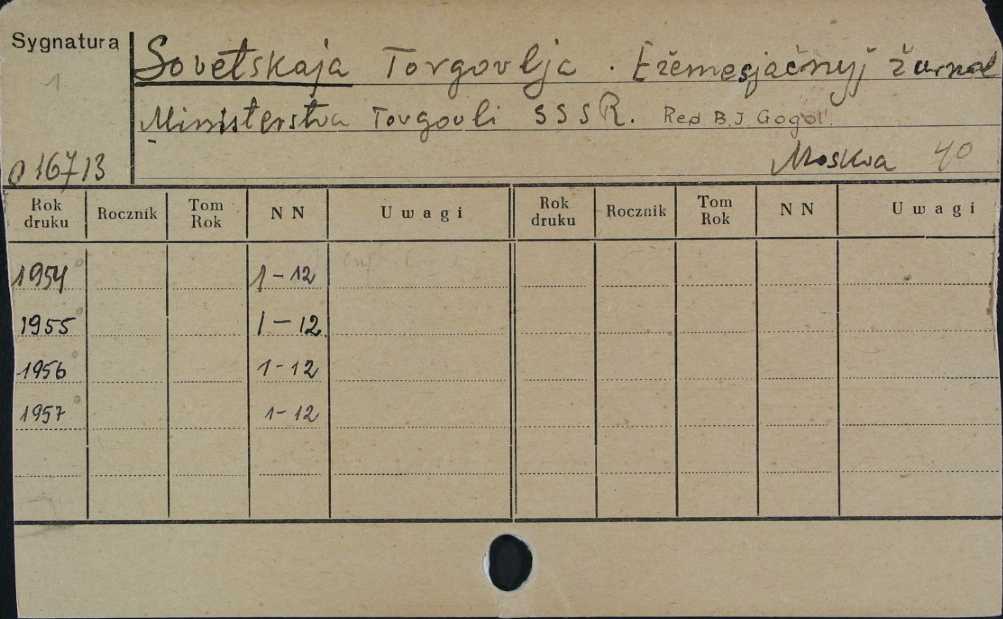 Sygnatura
1
Sovetskaja Torgovlja. Ežemesjačnyj žurnal
Ministerstva Torgovli SSSR. Red B. J Gogol'.
O 16713
Moskva 40
Rok druku Rocznik Tom Rok NN Uwagi Rok druku Rocznik Tom Rok NN Uwagi
1954 1-12
1955 1-12
1956 1-12
1957 1-12